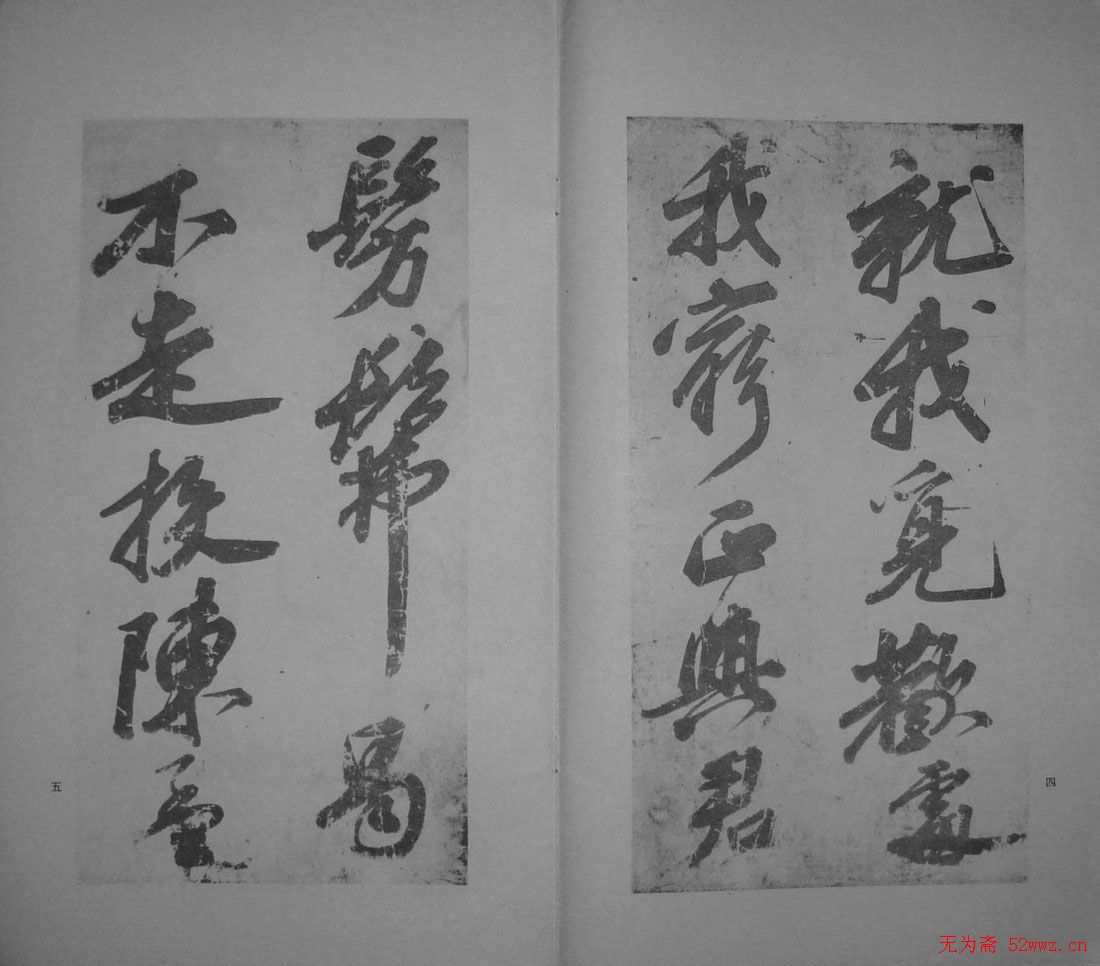 就我覓歡處
我窮正與君
髣髴曷
不走投陳孟
四
五
无为斋 52wwz.cn